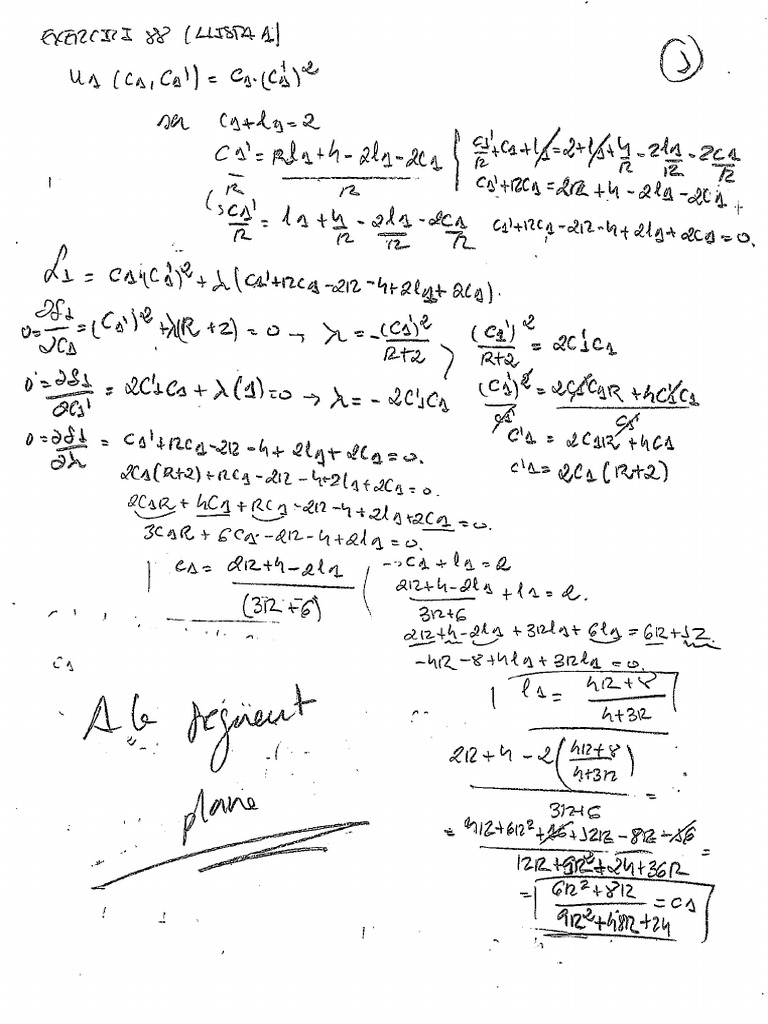 EXERCICI 88 (LLISTA 1)
1
U1 (C1, C1') = C1·(C1')^2
sa C1+l1=2
C1'/R = (Rl1+4-2l1-2C1)/R
C1'/R+C1+l1=2+l1+4/R-2l1/R-2C1/R
C1'+RC1=2R+4-2l1-2C1
C1'/R = l1+4/R-2l1/R-2C1/R
C1'+RC1-2R-4+2l1+2C1=0.
L1 = C1·(C1')^2+λ(C1'+RC1-2R-4+2l1+2C1).
0=∂L1/∂C1=(C1')^2+λ(R+2)=0 → λ=-(C1')^2/(R+2)
(C1')^2/(R+2) = 2C1'C1
0=∂L1/∂C1' = 2C1'C1+λ(1)=0 → λ=-2C1'C1
(C1')^2/C1' = (2C1'C1R+4C1'C1)/C1'
C1'=2C1R+4C1
C1'=2C1(R+2)
0=∂L1/∂λ = C1'+RC1-2R-4+2l1+2C1=0.
2C1(R+2)+RC1-2R-4+2l1+2C1=0.
2C1R+4C1+RC1-2R-4+2l1+2C1=0.
3C1R+6C1-2R-4+2l1=0.
C1 = (2R+4-2l1)/(3R+6)
→ C1+l1=2
(2R+4-2l1)/(3R+6)+l1=2.
2R+4-2l1+3Rl1+6l1=6R+12
-4R-8+4l1+3Rl1=0.
l1 = (4R+8)/(4+3R)
C1
A la següent
plane
(2R+4-2((4R+8)/(4+3R)))/(3R+6) =
= (4R+6R^2+16+12R-8R-16)/(12R+9R^2+24+36R) =
= (6R^2+8R)/(9R^2+48R+24) = C1